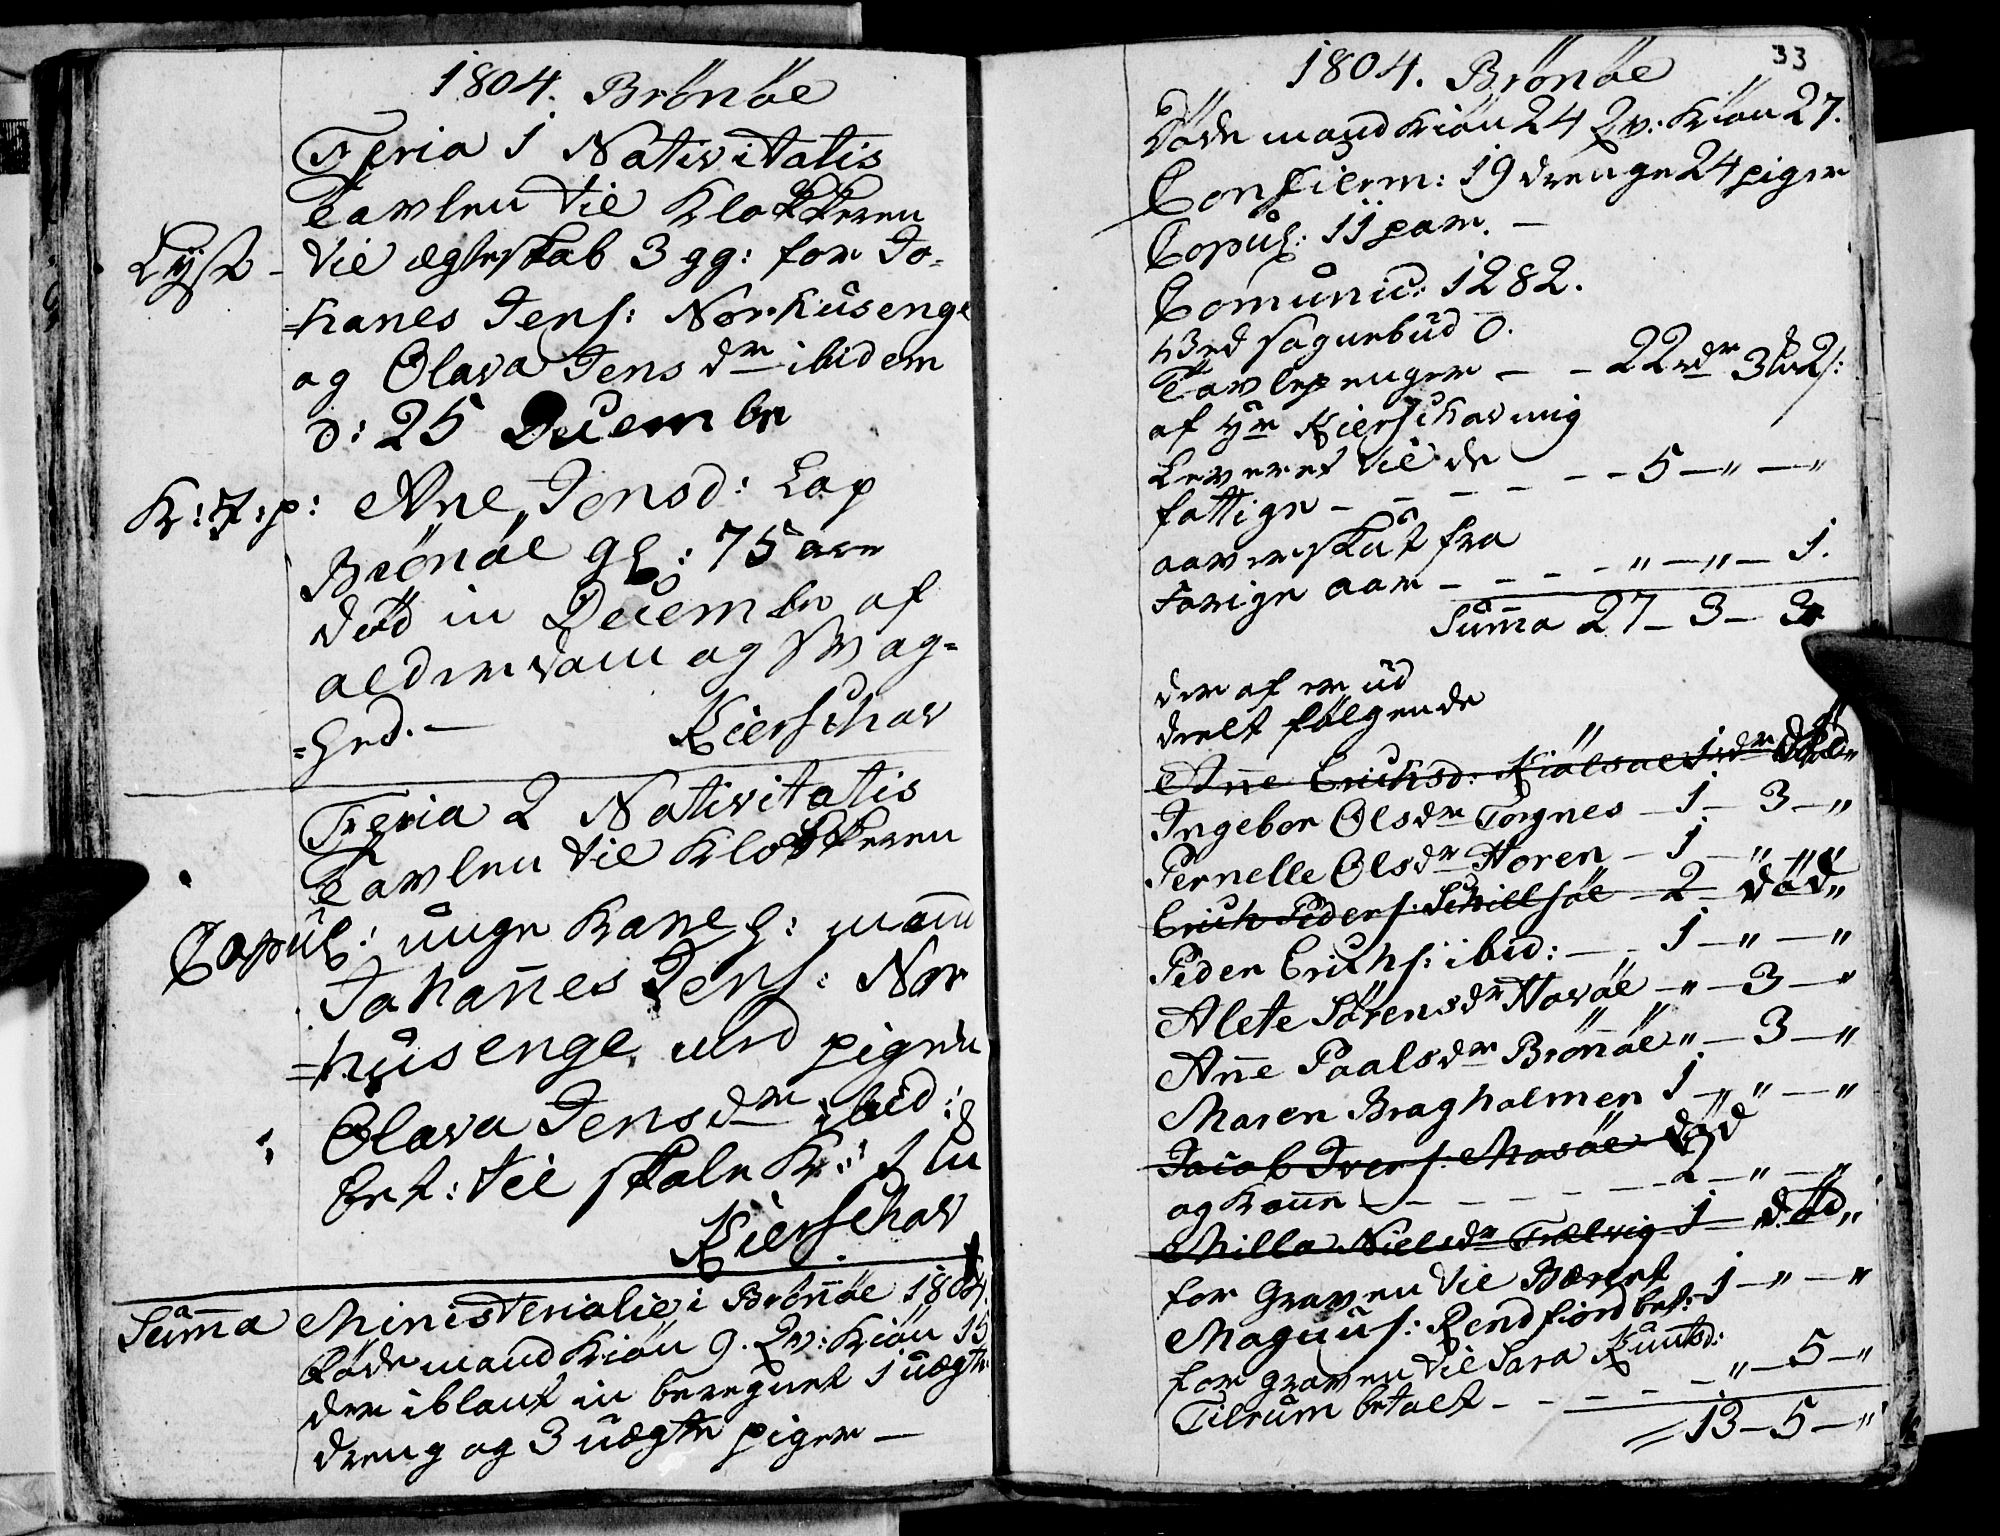 1804. Brönöe
Feria 1 Nativitatis
Tavlen til Klokkeren
Lyst - til ægteskab 3 gg: for Jo-
=hanes Jens: Norhusenge
og Olava Jens dr ibidem
d: 25 Decembr
K: J: p: Ane Jonsd: Lap
Brönöe gl: 75 aar
död in Decembr af
alderdom og svag-
=hed. — Kierschov
Feria 2 Nativitatis
Tavlen til Klokkeren
Copul: unge Karl h: mand
Johannes Jens: Nor
=husenge med pigen
Olava Jens dr ibid:
Bet: til skole K: 1
Kierschov
Summa Ministerialie i Brönöe 1804.
födde mand Kiön 9. Qv: Kiön 15
der iblant in beregnet 1 uægte
dreng og 3 uægte piger —
33
1804. Brönöe
Döde mand Kiön 24 Qv: Kiön 27.
Confierm: 19 drenge 24 piger
Copul: 11 par. —
Comunic: 1282.
Ved sognebud 0.
Tavlepenger — - 22 rdr 3 2s:
af Hr Kierschov mig
Leveret til de
fattige - - - - - - 5 — „ — „
overskut fra
forige aar - - - - „ — „ — 1.
Summa 27 - 3 - 3
der af er ud
deelt fölgende
Anne Erichsd: Kiölsöe 1 rdr död
Ingebor Olsdr Torgnes - 1 - 3 - „
Pernelle Olsdr Horen - 1 - „ - „
Erich Peders: Schillsöe - 2 - död „
Peder Erichs: ibid: - - 1 - „ - „
Alete Sörensdr Havöe - „ - 3 - „
Anne Paalsdr Brönöe „ - 3 - „
Maren Bragholmen 1 - „ - „
Jacob Ivers: Mosöe död
og Kone - - - - - - 2 - „ - „
Milla Nielsdr Trælvig 1 - död „
for Graven til Barnet
Magnus: Rendfiord bet: 1 - „ - „
for graven til Sara Knutsd:
Tilrum betalt - - - - „ - 5 - „
= 13 - 5 - „